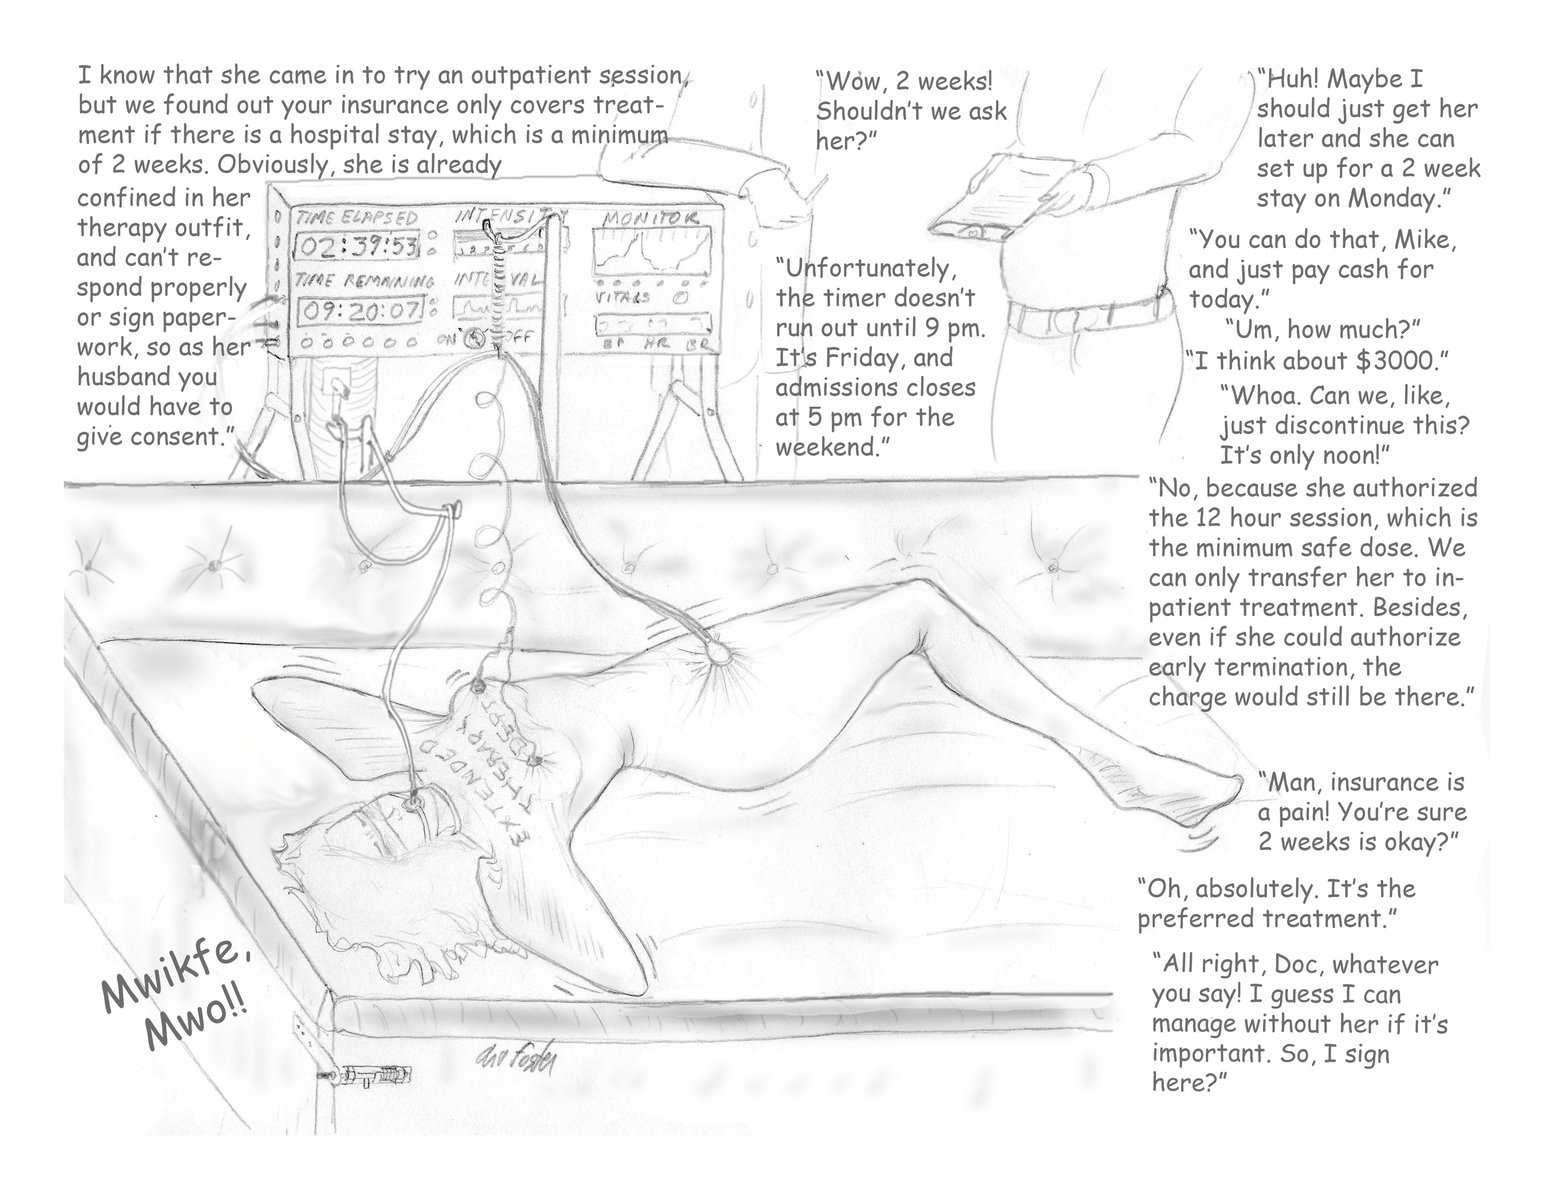 I know that she came in to try an outpatient session,
but we found out your insurance only covers treat-
ment if there is a hospital stay, which is a minimum
of 2 weeks. Obviously, she is already
confined in her
therapy outfit,
and can't re-
spond properly
or sign paper-
work, so as her
husband you
would have to
give consent.”
“Wow, 2 weeks!
Shouldn't we ask
her?”
“Huh! Maybe I
should just get her
later and she can
set up for a 2 week
stay on Monday.”
“You can do that, Mike,
and just pay cash for
today.”
“Unfortunately,
the timer doesn't
run out until 9 pm.
It's Friday, and
admissions closes
at 5 pm for the
weekend.”
“Um, how much?”
“I think about $3000.”
“Whoa. Can we, like,
just discontinue this?
It's only noon!”
“No, because she authorized
the 12 hour session, which is
the minimum safe dose. We
can only transfer her to in-
patient treatment. Besides,
even if she could authorize
early termination, the
charge would still be there.”
“Man, insurance is
a pain! You're sure
2 weeks is okay?”
“Oh, absolutely. It's the
preferred treatment.”
“All right, Doc, whatever
you say! I guess I can
manage without her if it's
important. So, I sign
here?”
TIME ELAPSED
02:39:53
TIME REMAINING
09:20:07
INTENSITY
INTERVAL
ON OFF
MONITOR
VITALS
BP HR BR
EXTENDED
THERAPY
DEPT
Mwikfe,
Mwo!!